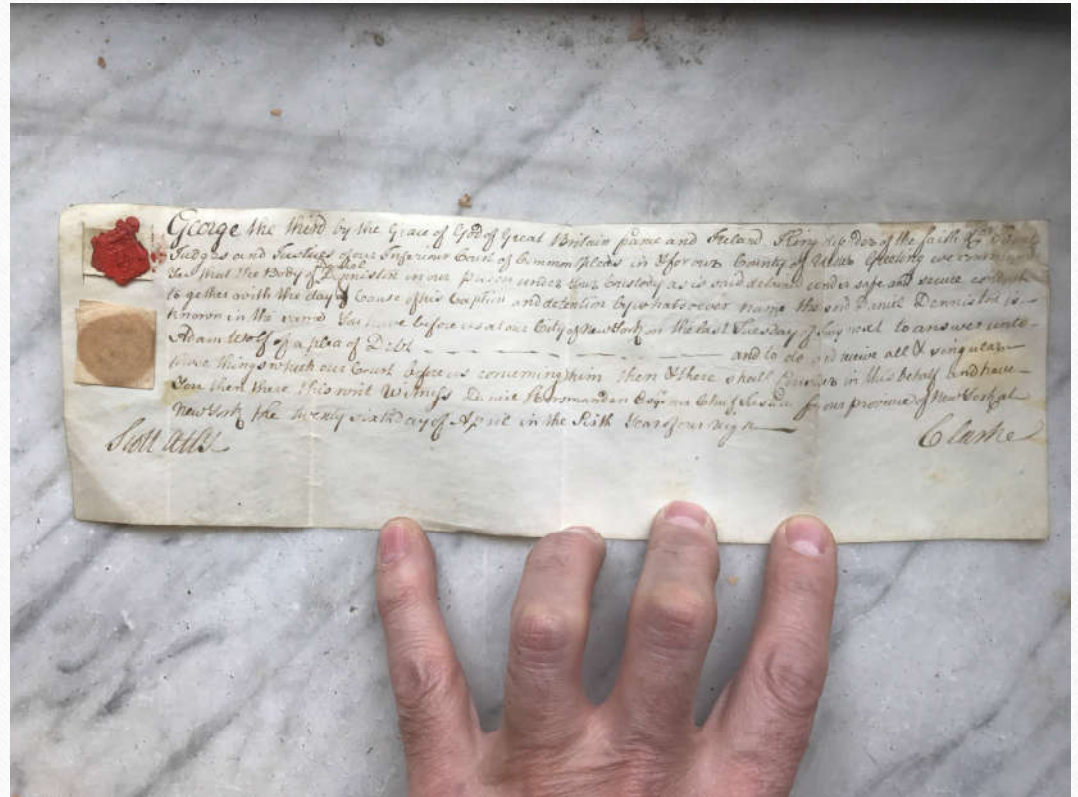 George the third by the Grace of God of Great Britain france and Ireland King of the faith &c To the
Judges and Justices of our Inferiour Court of Common pleas in & for our County of Ulster Greeting we command
You that the Body of Daniel Denniston in our prison under Your Custody as is said detained under safe and secure conduct
to gether with the day & Cause of his Caption and detention by whatsoever name the said Daniel Denniston is
known in the same You have before us at our City of New York on the last Tuesday of July next to answer unto
Adam Wolf of a plea of Debt - - - - - - - - - - and to do and receive all & singular
those things which our Court before us concerning him then & there shall Consider in this behalf and have
You then there this writ Witness Daniel Horsmanden Esqr our Chief Justice for our province of New York at
New York the twenty sixth day of April in the Sixth Year of our reign
Scott Atty
Clarke